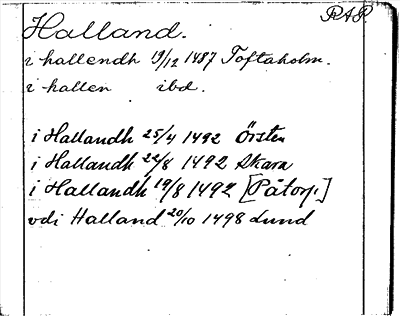 RAP.
Halland.
i hallendh 19/12 1487 Toftaholm.
i hallen ibd.
i Hallandh 25/4 1492 Örsten
i Hallandh 22/8 1492 Skara
i Hallandh 19/8 1492 [Påtorp.]
vdi Halland 20/10 1498 Lund